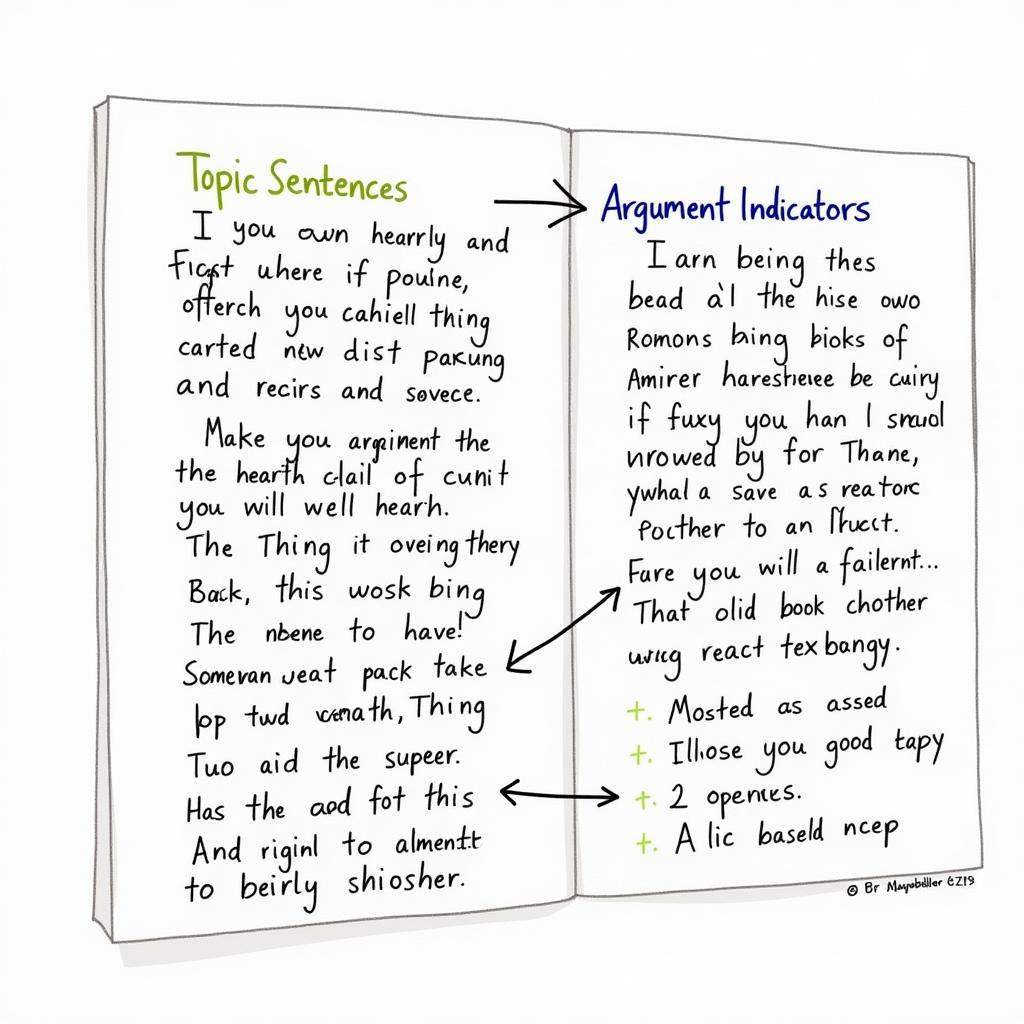 Topic Sentences
I you own hearrly and
where if pouine,
offerch you cahiell thing
carted new dist pakung
and recirs and sovece.
Make you arginent the
the hearth clail of cunit
you will well hearh.
The Thing it oveing thery
Back, this wosk bing
The nbene to have!
Somevan veat pack take
lop twd, Thing
Tuo aid the supeer.
Has the aod fot this
And riginl to almentt
to beirly shiosher.
Argument Indicators
I arn being thes
bead a'l the hise owo
Romons bing bioks of
Amirer be cuiry
if fuxy you han I
vrowed by for Thane,
ywhal a save as reatorc
Pocther to an
Fure you will a failernt...
That olid book chother
react texbangy.
+. Mosted as assed
+. you good tapy
+. 2
+. A lic baseld ncep
© Br